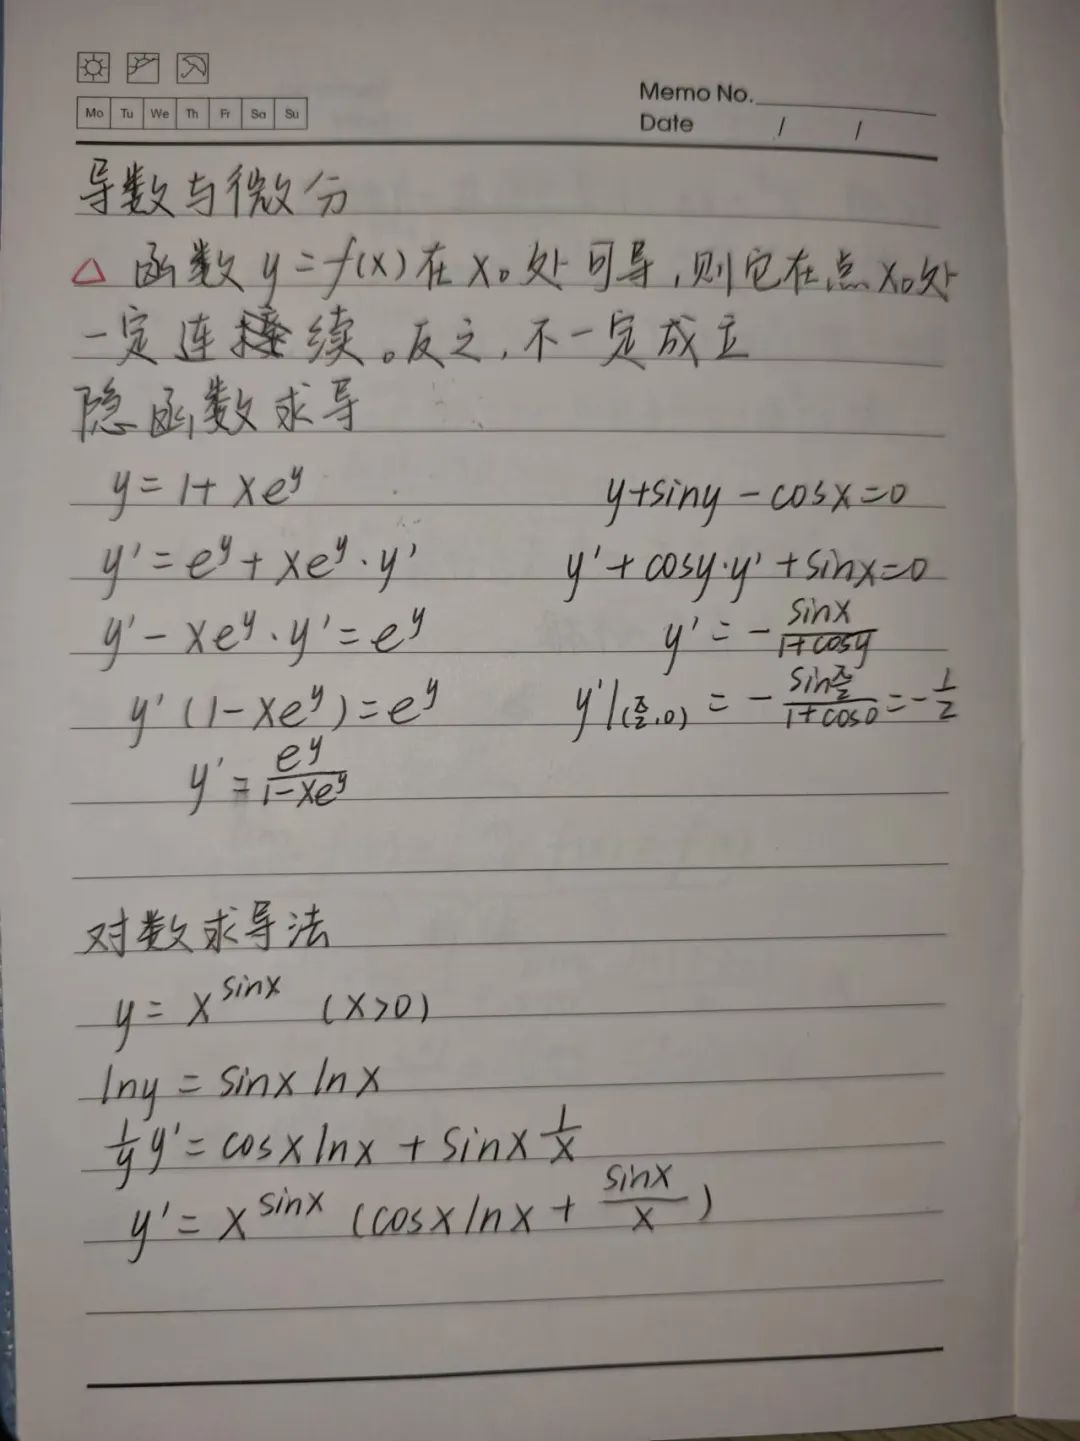 Mo Tu We Th Fr Sa Su
Memo No.
Date / /
导数与微分
△ 函数 y=f(x) 在 x₀ 处可导,则它在点 x₀ 处
一定连续。反之,不一定成立
隐函数求导
y=1+xe^y
y'=e^y+xe^y·y'
y'-xe^y·y'=e^y
y'(1-xe^y)=e^y
y'=e^y/(1-xe^y)
y+siny-cosx=0
y'+cosy·y'+sinx=0
y'=-sinx/(1+cosy)
y'|(π/2,0)=-sin(π/2)/(1+cos0)=-1/2
对数求导法
y=x^sinx (x>0)
lny=sinx lnx
1/y y'=cosx lnx+sinx 1/x
y'=x^sinx (cosx lnx+sinx/x)